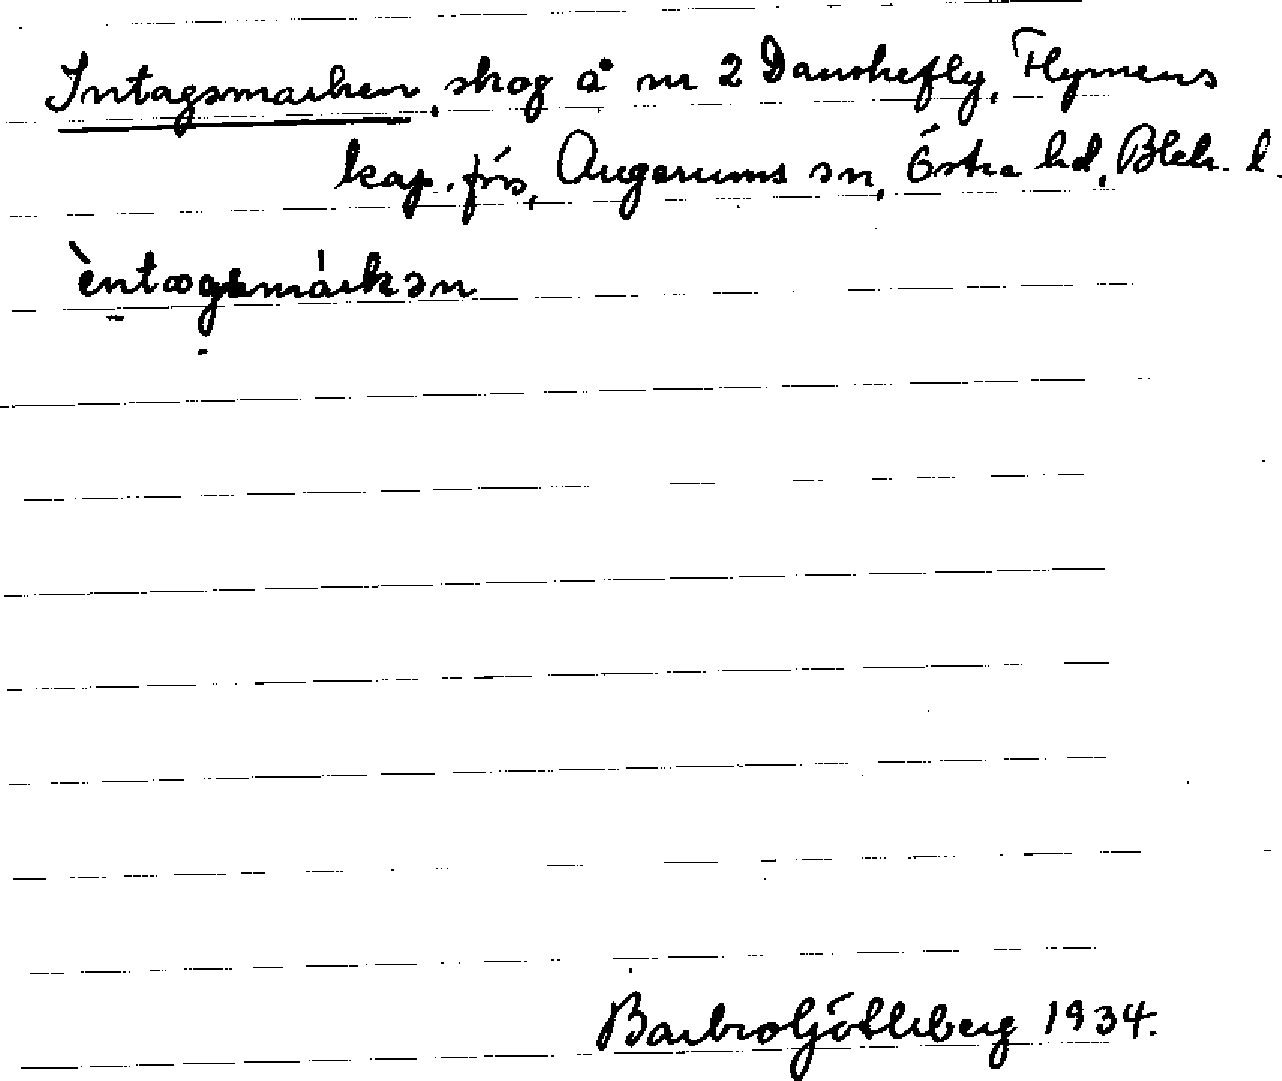 Intagsmarken, skog å nr 2 Danskefly, Flymens
kap. förs, Augerums sn, Östra hd, Blek. l.
èntaɷgsmárkən
Barbro Götherberg 1934.